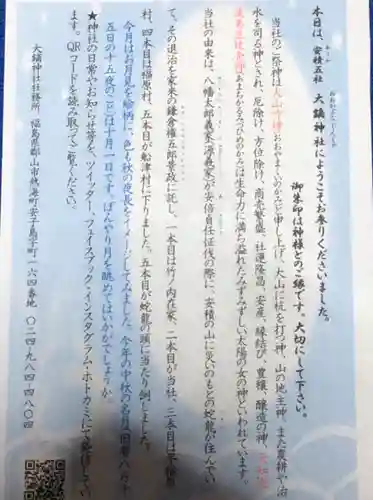 本日は、安積五社 大鏑神社にようこそお参りくださいました。
御朱印は神様とのご縁です。大切にして下さい。
当社のご祭神は大山祇神(おおやまづみのかみ)と申し上げ、大山に杭を打つ神、山の地主神、また農耕や治
水を司る神とされ、厄除け、方位除け、商売繁盛、社運隆昌、安産、縁結び、豊穣、醸造の神
は生命力に満ち溢れたみずみずしい太陽の女の神といわれています。
当社の由来は、八幡太郎義家(源義家)が安倍貞任征伐の際に、安積の山に災いのもとの蛇龍が住んでい
て、その退治を家来の鎌倉権五郎景政に託し、一本目は竹ノ内在家、二本目が当社、三本目は
村、四本目は福原村、五本目が舩津村に下りました。五本目が蛇龍の頭に当たり倒しました。
今月はお月見を絵柄に、色も秋の夜長をイメージしてみました。今年の中秋の名月(旧暦八月十
五日の十五夜のこと)は十月一日です。ぼんやり月を眺めてはいかがでしょうか
★神社の日常やお知らせ等を、ツイッター、フェイスブック・インスタグラム・ホトカミにて発信してい
ます。QRコードを読み取ってご覧ください。
大鏑神社社務所 福島県郡山市熱海町安子島字町一六四番地 〇二四-九八四-四八〇四